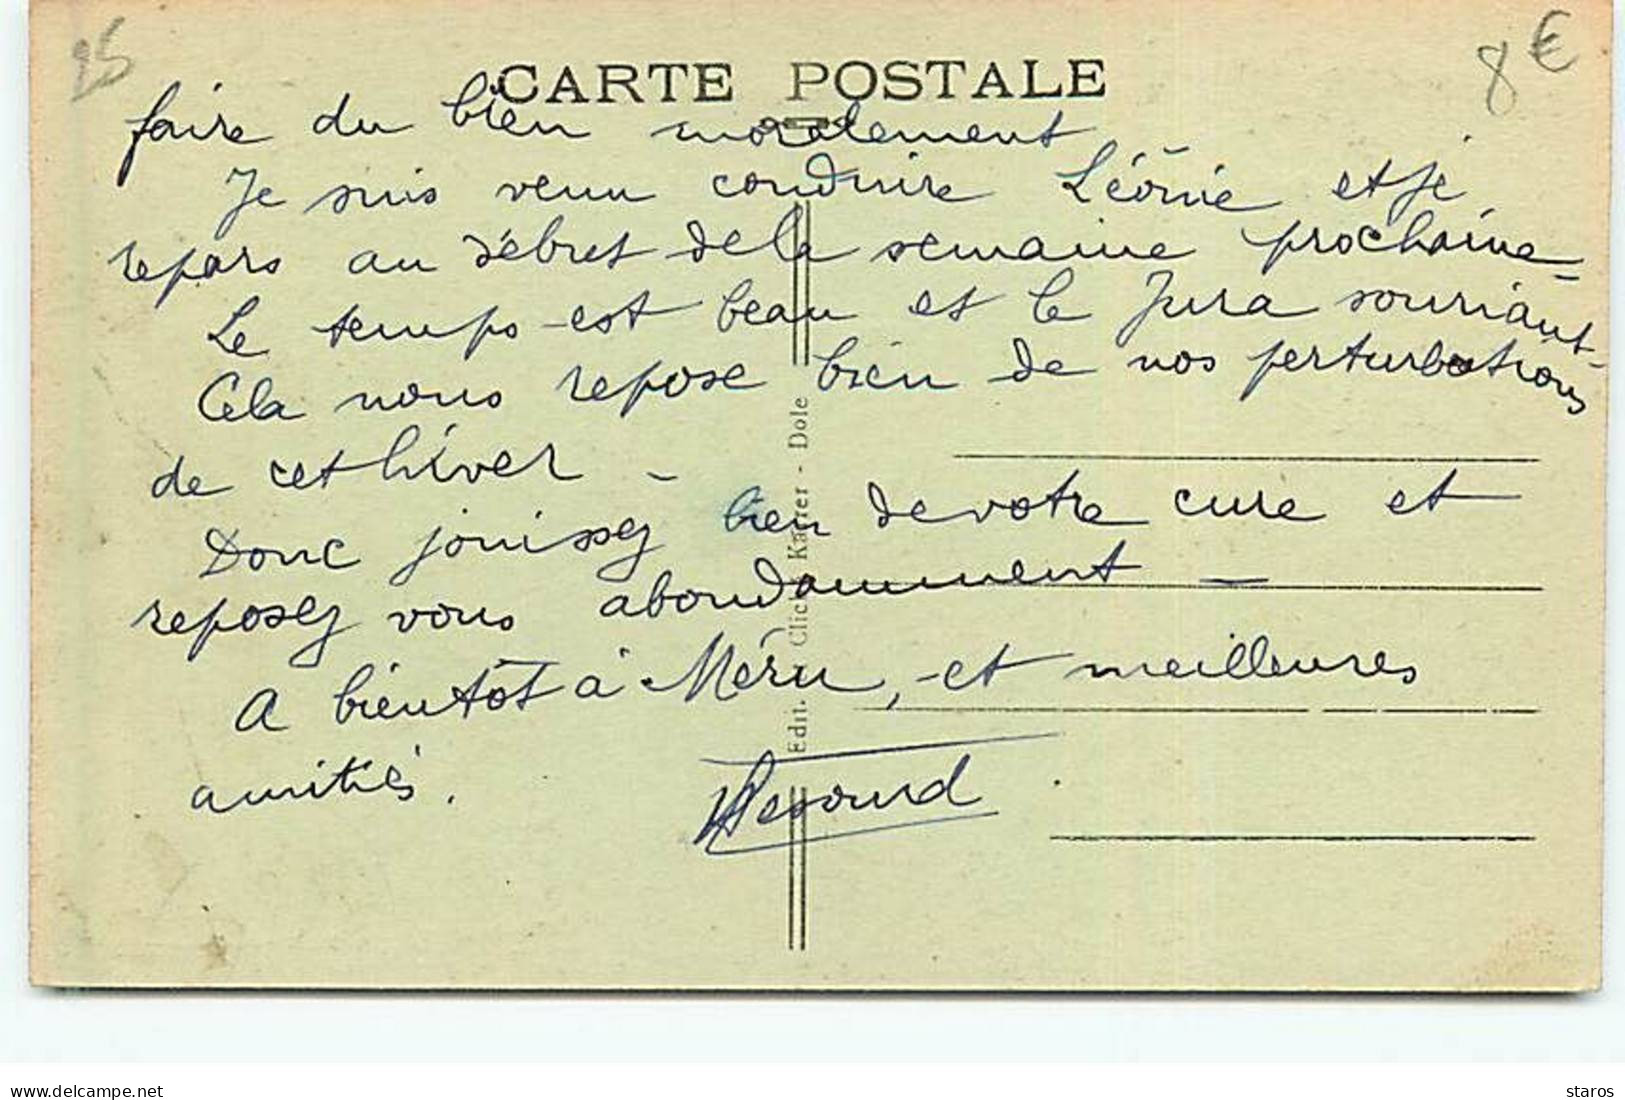 25
8 €
CARTE POSTALE
faire du bien moralement
Je suis venu conduire Léonie et je
repars au début de la semaine prochaine -
Le temps est beau et le Jura souriant -
Cela nous repose bien de nos perturbations
de cet hiver -
Donc jouissez bien de votre cure et
reposez vous abondamment -
A bientôt à Méru, et meilleures
amitiés.
Edit. Clich. Karrer - Dole
www.delcampe.net
staros